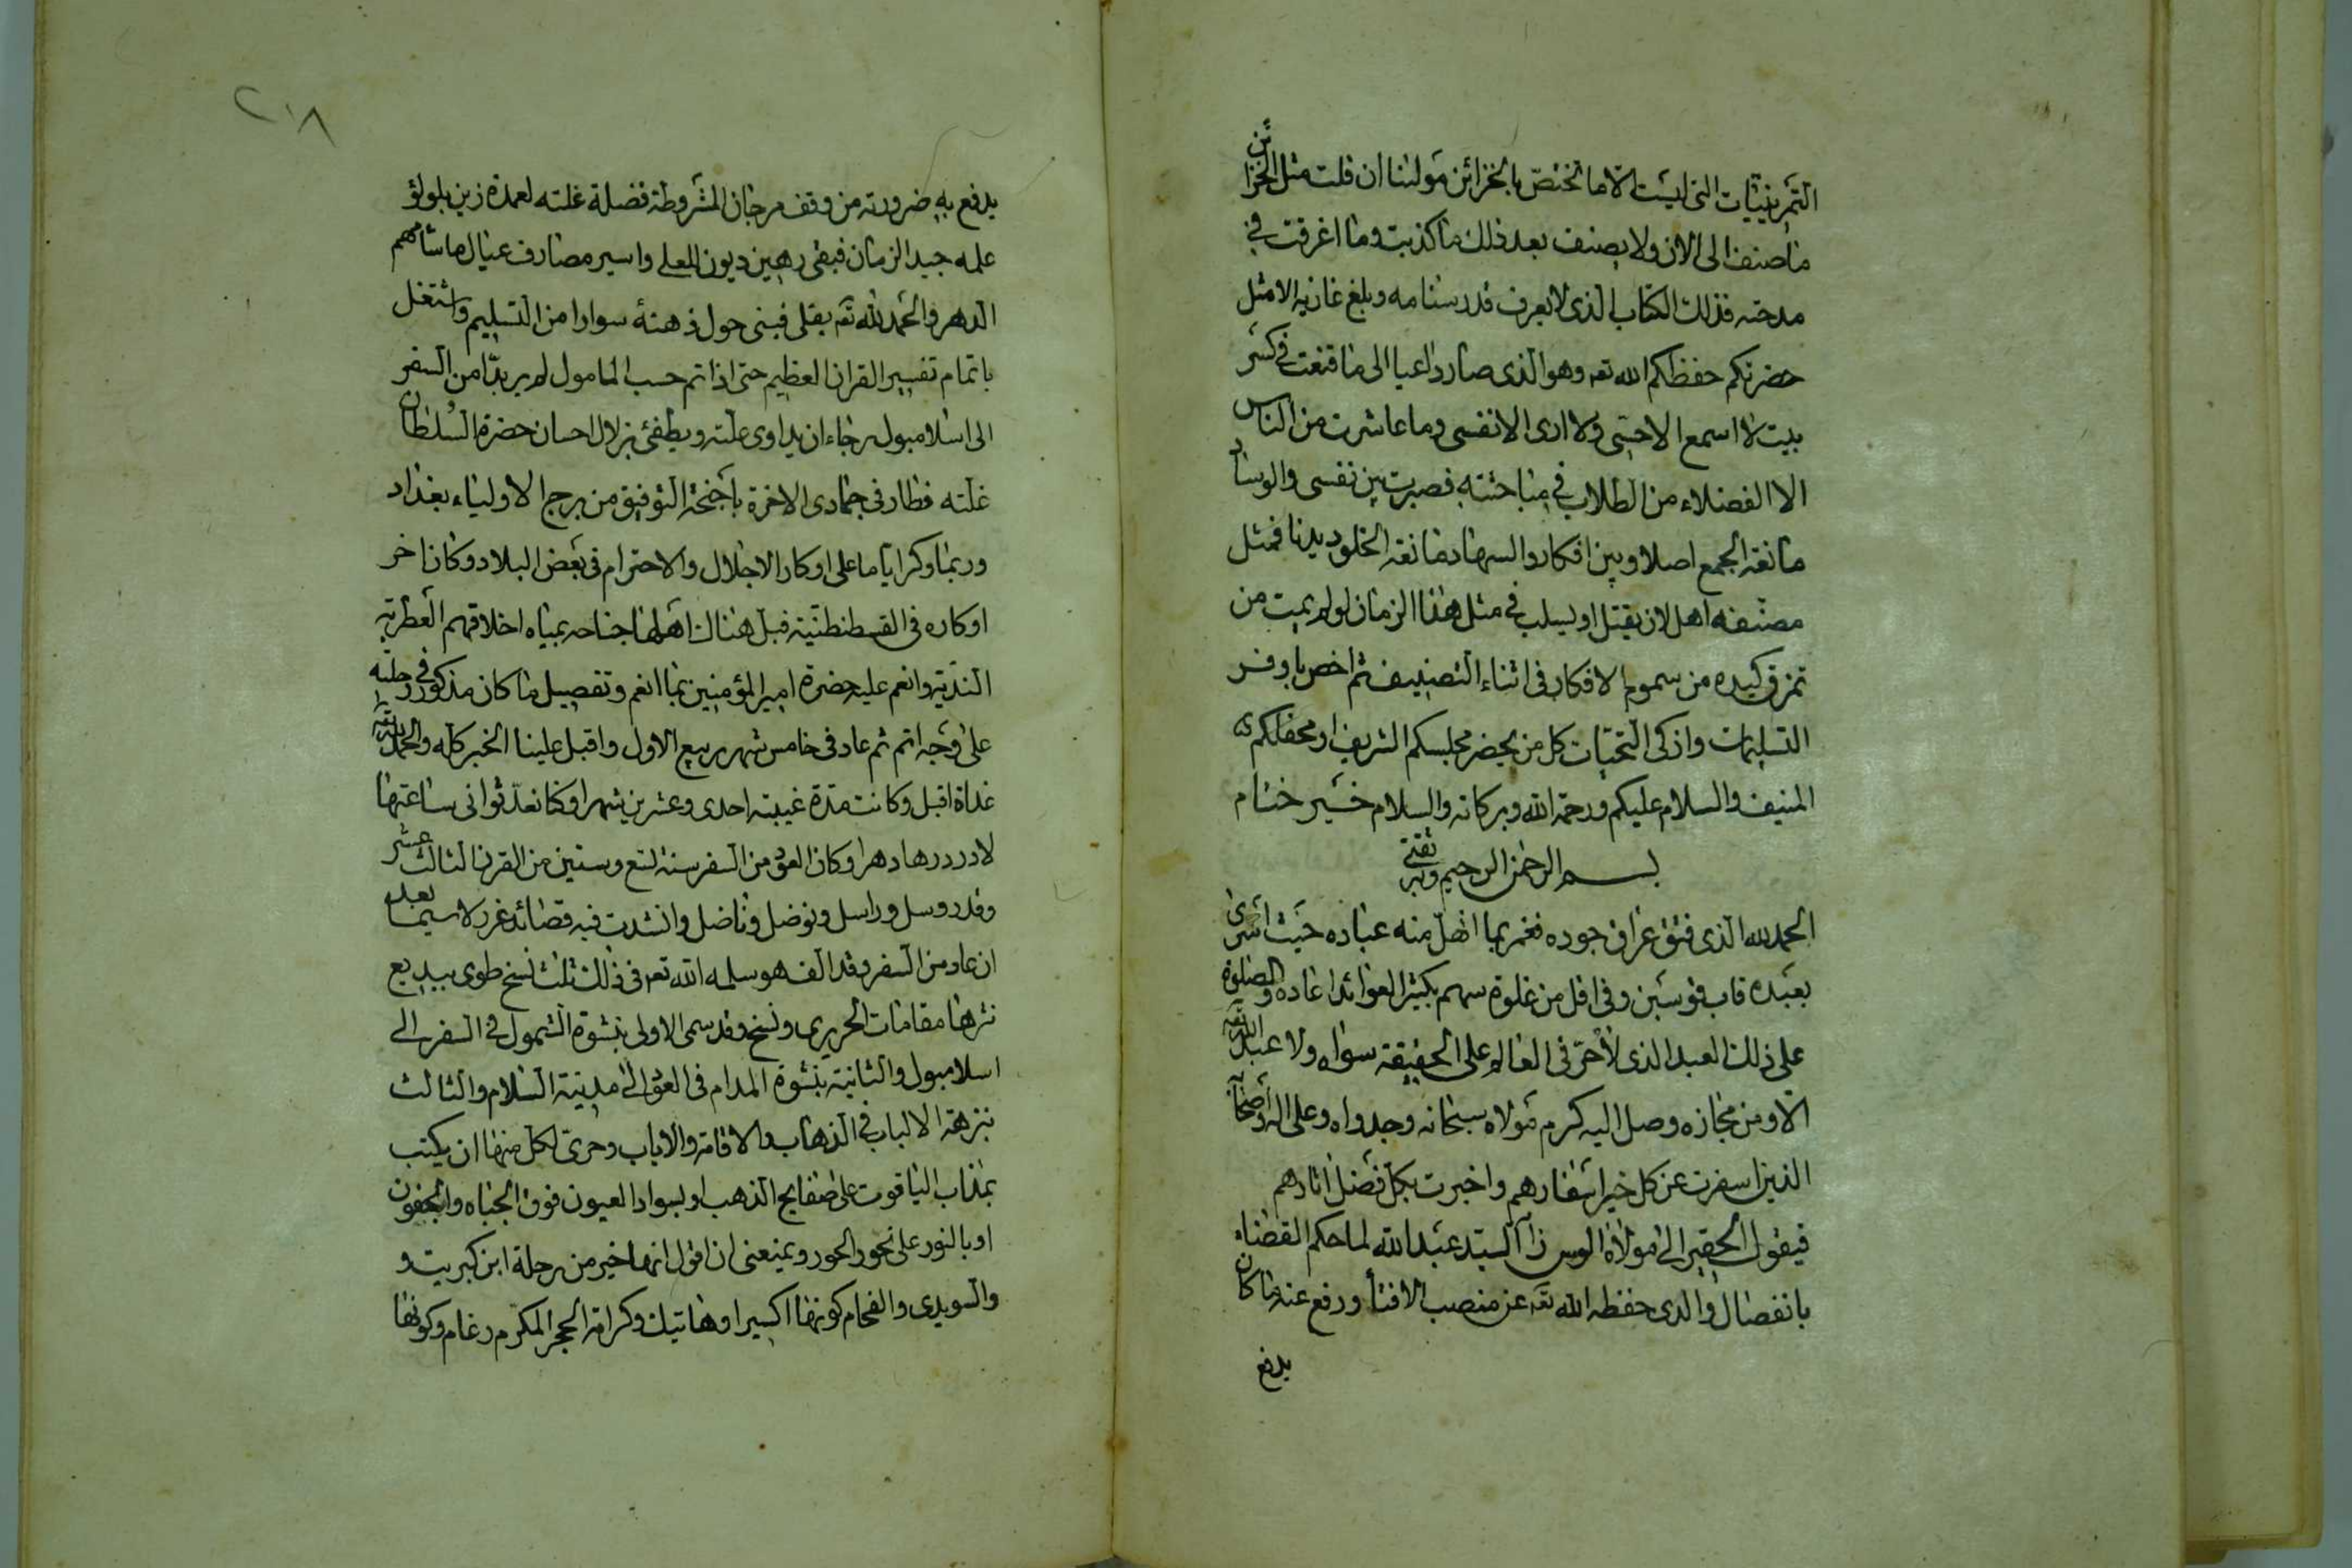 التمرينيات التى ليست الا ما تختص بالخزائن مولينا ان قلت مثل الخزائن
ما صنف الى الان ولا يصنف بعد ذلك ما كذبت وما اغرقت في
مدحته فذلك الكتاب الذى لا يعرف قدر سنامه وبلغ غاربه الا مثل
حضرتكم حفظكم الله تعه وهو الذى صار داعيا الى ما قنعت في كسر
بيت لا اسمع الا حسى ولا ارى الا نفسى وما عاشرت من الناس
الا الفضلاء من الطلاب في مباحثته فصيرت بين نفسى والوساد
مانعة الجمع اصلا وبين افكار والسهاد مانعة الخلو ديدنا فمثل
مصنفه اهل لان يقتل او يسلب في مثل هذا الزمان لو لم يمت من
تمزق كبده من سموم الافكار فى اثناء التصنيف ثم اخص باوفر
التسليمات وازكى التحيات كل من يحضر مجلسكم الشريف او محفلكم
المنيف والسلام عليكم ورحمة الله وبركاته والسلام خير ختام
بسم الرحمن الرحيم وبه ثقتى
الحمد لله الذى فتق عزالى جوده فغمر بما انهل منه عباده حيث اسرى
بعبده قاب قوسين وفى اقل من غلوة سهم بكثير العوائد اعاده والصلوة
على ذلك العبد الذى لا حر فى العالم على الحقيقة سواه ولا عبد لله تعه
الا ومن مجازه وصل اليه كرم مولاه سبحانه وجدواه وعلى اله واصحابه
الذين اسفرت عن كل خير اسفارهم واخبرت بكل فضل اثارهم
فيقول الحقير الى مولاه الوسى زاده السيد عبد الله لما حكم القضاء
بانفصال والدى حفظه الله تعه عن منصب الافتاء ورفع عنه ما كان
يدفع
٢١٨
يدفع به ضرورته من وقف مرجان المشروطة فضلة غلته لعمدة زين بلولؤ
علمه جيد الزمان فبقى رهين ديون المعلى واسير مصارف عيال ما شامهم
الدهر والحمد لله تعه بقلى فبنى حول ذهنه سوارا من التسليم واشتغل
باتمام تفسير القران العظيم حتى اذا تم حسب المامول لم ير بدا من السفر
الى اسلامبول رجاء ان يداوى علته ويطفئ بزلال احسان حضرة السلطان
غلته فطار فى جمادى الاخرة باجنحة التوفيق من برج الاولياء بغداد
وربما وكر اياما على اوكار الاجلال والاحترام فى بعض البلاد وكان اخر
اوكاره فى القسطنطنية فبل هناك اهلها جناحه بمياه اخلاقهم العطرية
الندية وانعم عليه حضرة امير المؤمنين بما انعم وتفصيل ما كان مذكور فى رحلته
على وجه اتم ثم عاد فى خامس شهر ربيع الاول واقبل علينا الخير كله والحمد لله تعه
غداة اقبل وكانت مدة غيبته احدى وعشرين شهرا وكنا نعد ثوانى ساعتها
لا در درها دهرا وكان العود من السفر سنة تسع وستين من القرن الثالث عشر
وقد روسل وراسل ونوضل وناضل وانشدت فيه قصائد غرر لا سيما بعد
ان عاد من السفر وقد الف هو سلمه الله تعه فى ذلك ثلث نسخ طوى ببديع
نثرها مقامات الحريرى ونسخ وقد سمى الاولى بنشوة الشمول في السفر الى
اسلامبول والثانية بنشوة المدام فى العود الى مدينة السلام والثالث
بنزهة الالباب في الذهاب والاقامة والاياب وحرى لكل منها ان يكتب
بمذاب الياقوت على صفايح الذهب او بسواد العيون فوق الجباه والجفون
او بالنور على نحور الحور ويمنعنى ان اقول انها خير من رحلة ابن كبريت و
والسويدى والفحام كونها اكسيرا وهاتيك وكرامة الحجر المكرم رغام وكونها